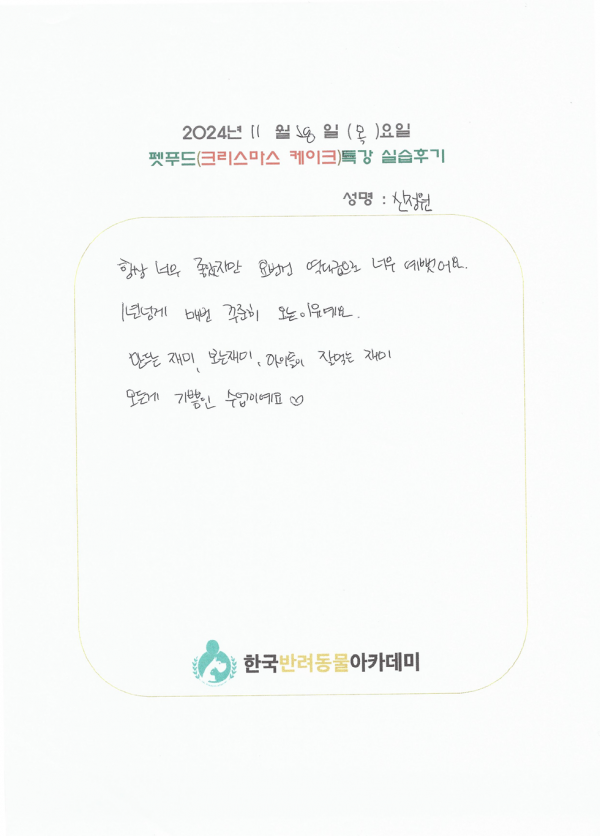 2024년 11 월 28 일 (목)요일
펫푸드(크리스마스 케이크)특강 실습후기
성명 : 신정원
항상 너무 좋았지만 요번건 역대급으로 너무 예뻤어요.
1년넘게 매번 꾸준히 오는이유예요.
만드는 재미, 보는재미, 아이들이 잘먹는 재미
모든게 기쁨인 수업이예요 ♡
한국반려동물아카데미